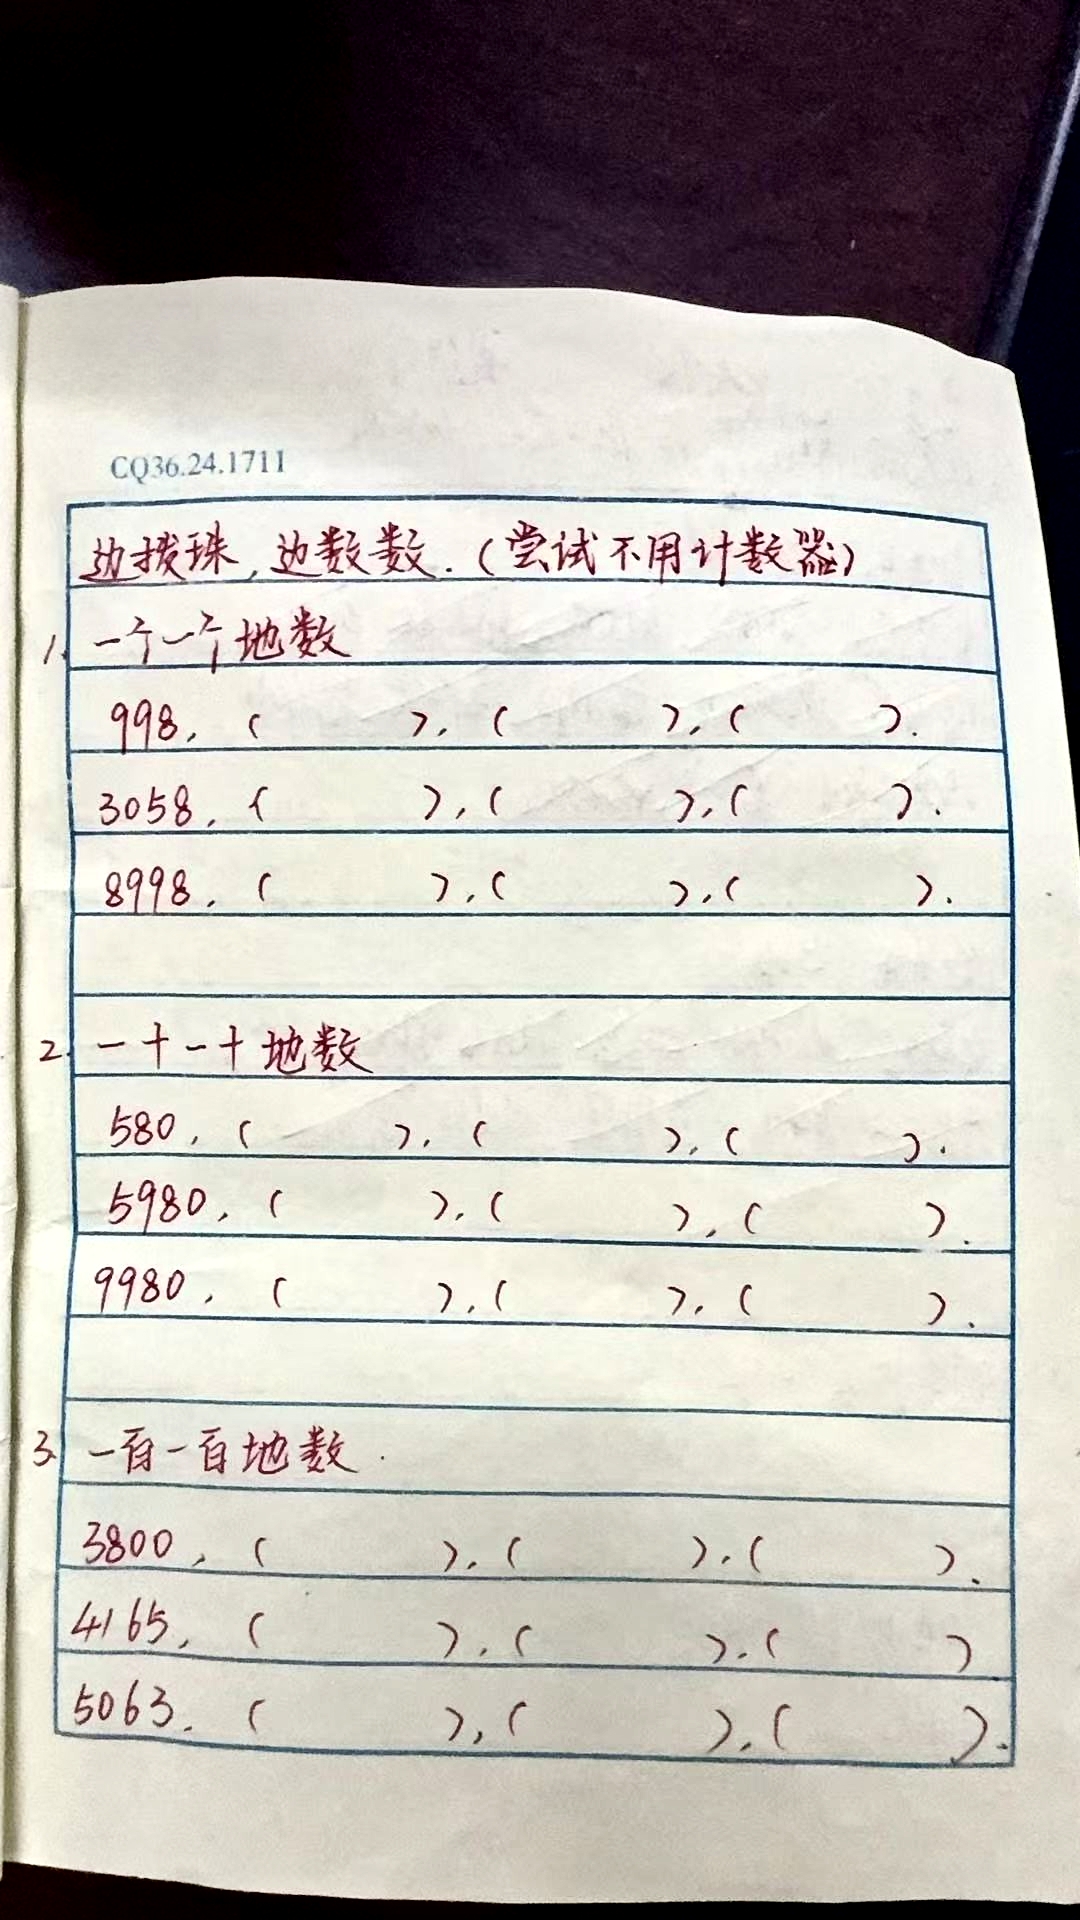 CQ36.24.1711
边拨珠,边数数.(尝试不用计数器)
1. 一个一个地数
998,(    ),(    ),(    ).
3058,(    ),(    ),(    ).
8998,(    ),(    ),(    ).
2. 一十一十地数
580,(    ),(    ),(    ).
5980,(    ),(    ),(    ).
9980,(    ),(    ),(    ).
3. 一百一百地数.
3800,(    ),(    ),(    ).
4165,(    ),(    ),(    )
5063,(    ),(    ),(    ).